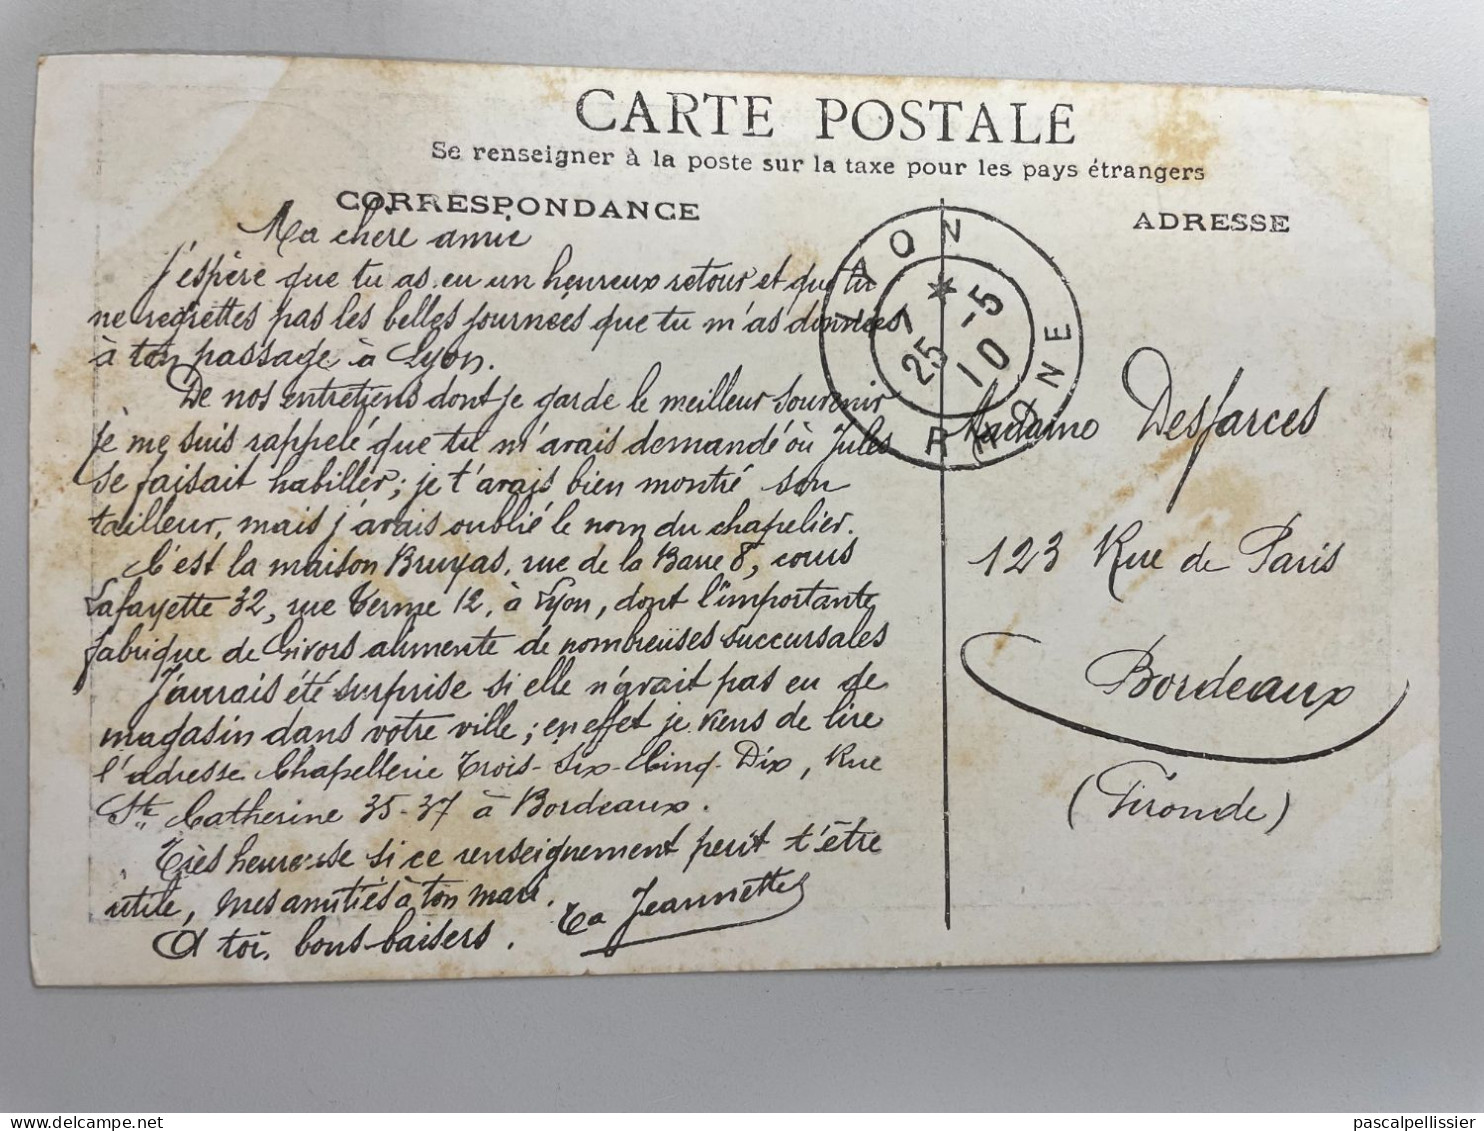 CARTE POSTALE
Se renseigner à la poste sur la taxe pour les pays étrangers
CORRESPONDANCE
Ma chère amie
J'espère que tu as eu un heureux retour et que tu
ne regrettes pas les belles journées que tu m'as données
à ton passage à Lyon.
De nos entretiens dont je garde le meilleur souvenir
je me suis rappelé que tu m'avais demandé où Jules
se faisait habiller; je t'avais bien montré son
tailleur, mais j'avais oublié le nom du chapelier.
C'est la maison Bruyas, rue de la Barre 8, cours
Lafayette 32, rue Terme 12, à Lyon, dont l'importante
fabrique de Givors alimente de nombreuses succursales
J'aurais été surprise si elle n'avait pas eu de
magasin dans votre ville; en effet je viens de lire
l'adresse Chapellerie Trois-Six-Cinq-Dix, Rue
Ste Catherine 35-37 à Bordeaux.
Très heureuse si ce renseignement peut t'être
utile, mes amitiés à ton mari.
A toi, bons baisers.
Ta Jeannette
LYON
RHNE
7 * 25 -5
10
ADRESSE
Madame Desfarces
123 Rue de Paris
Bordeaux
(Gironde)
pascalpellissier